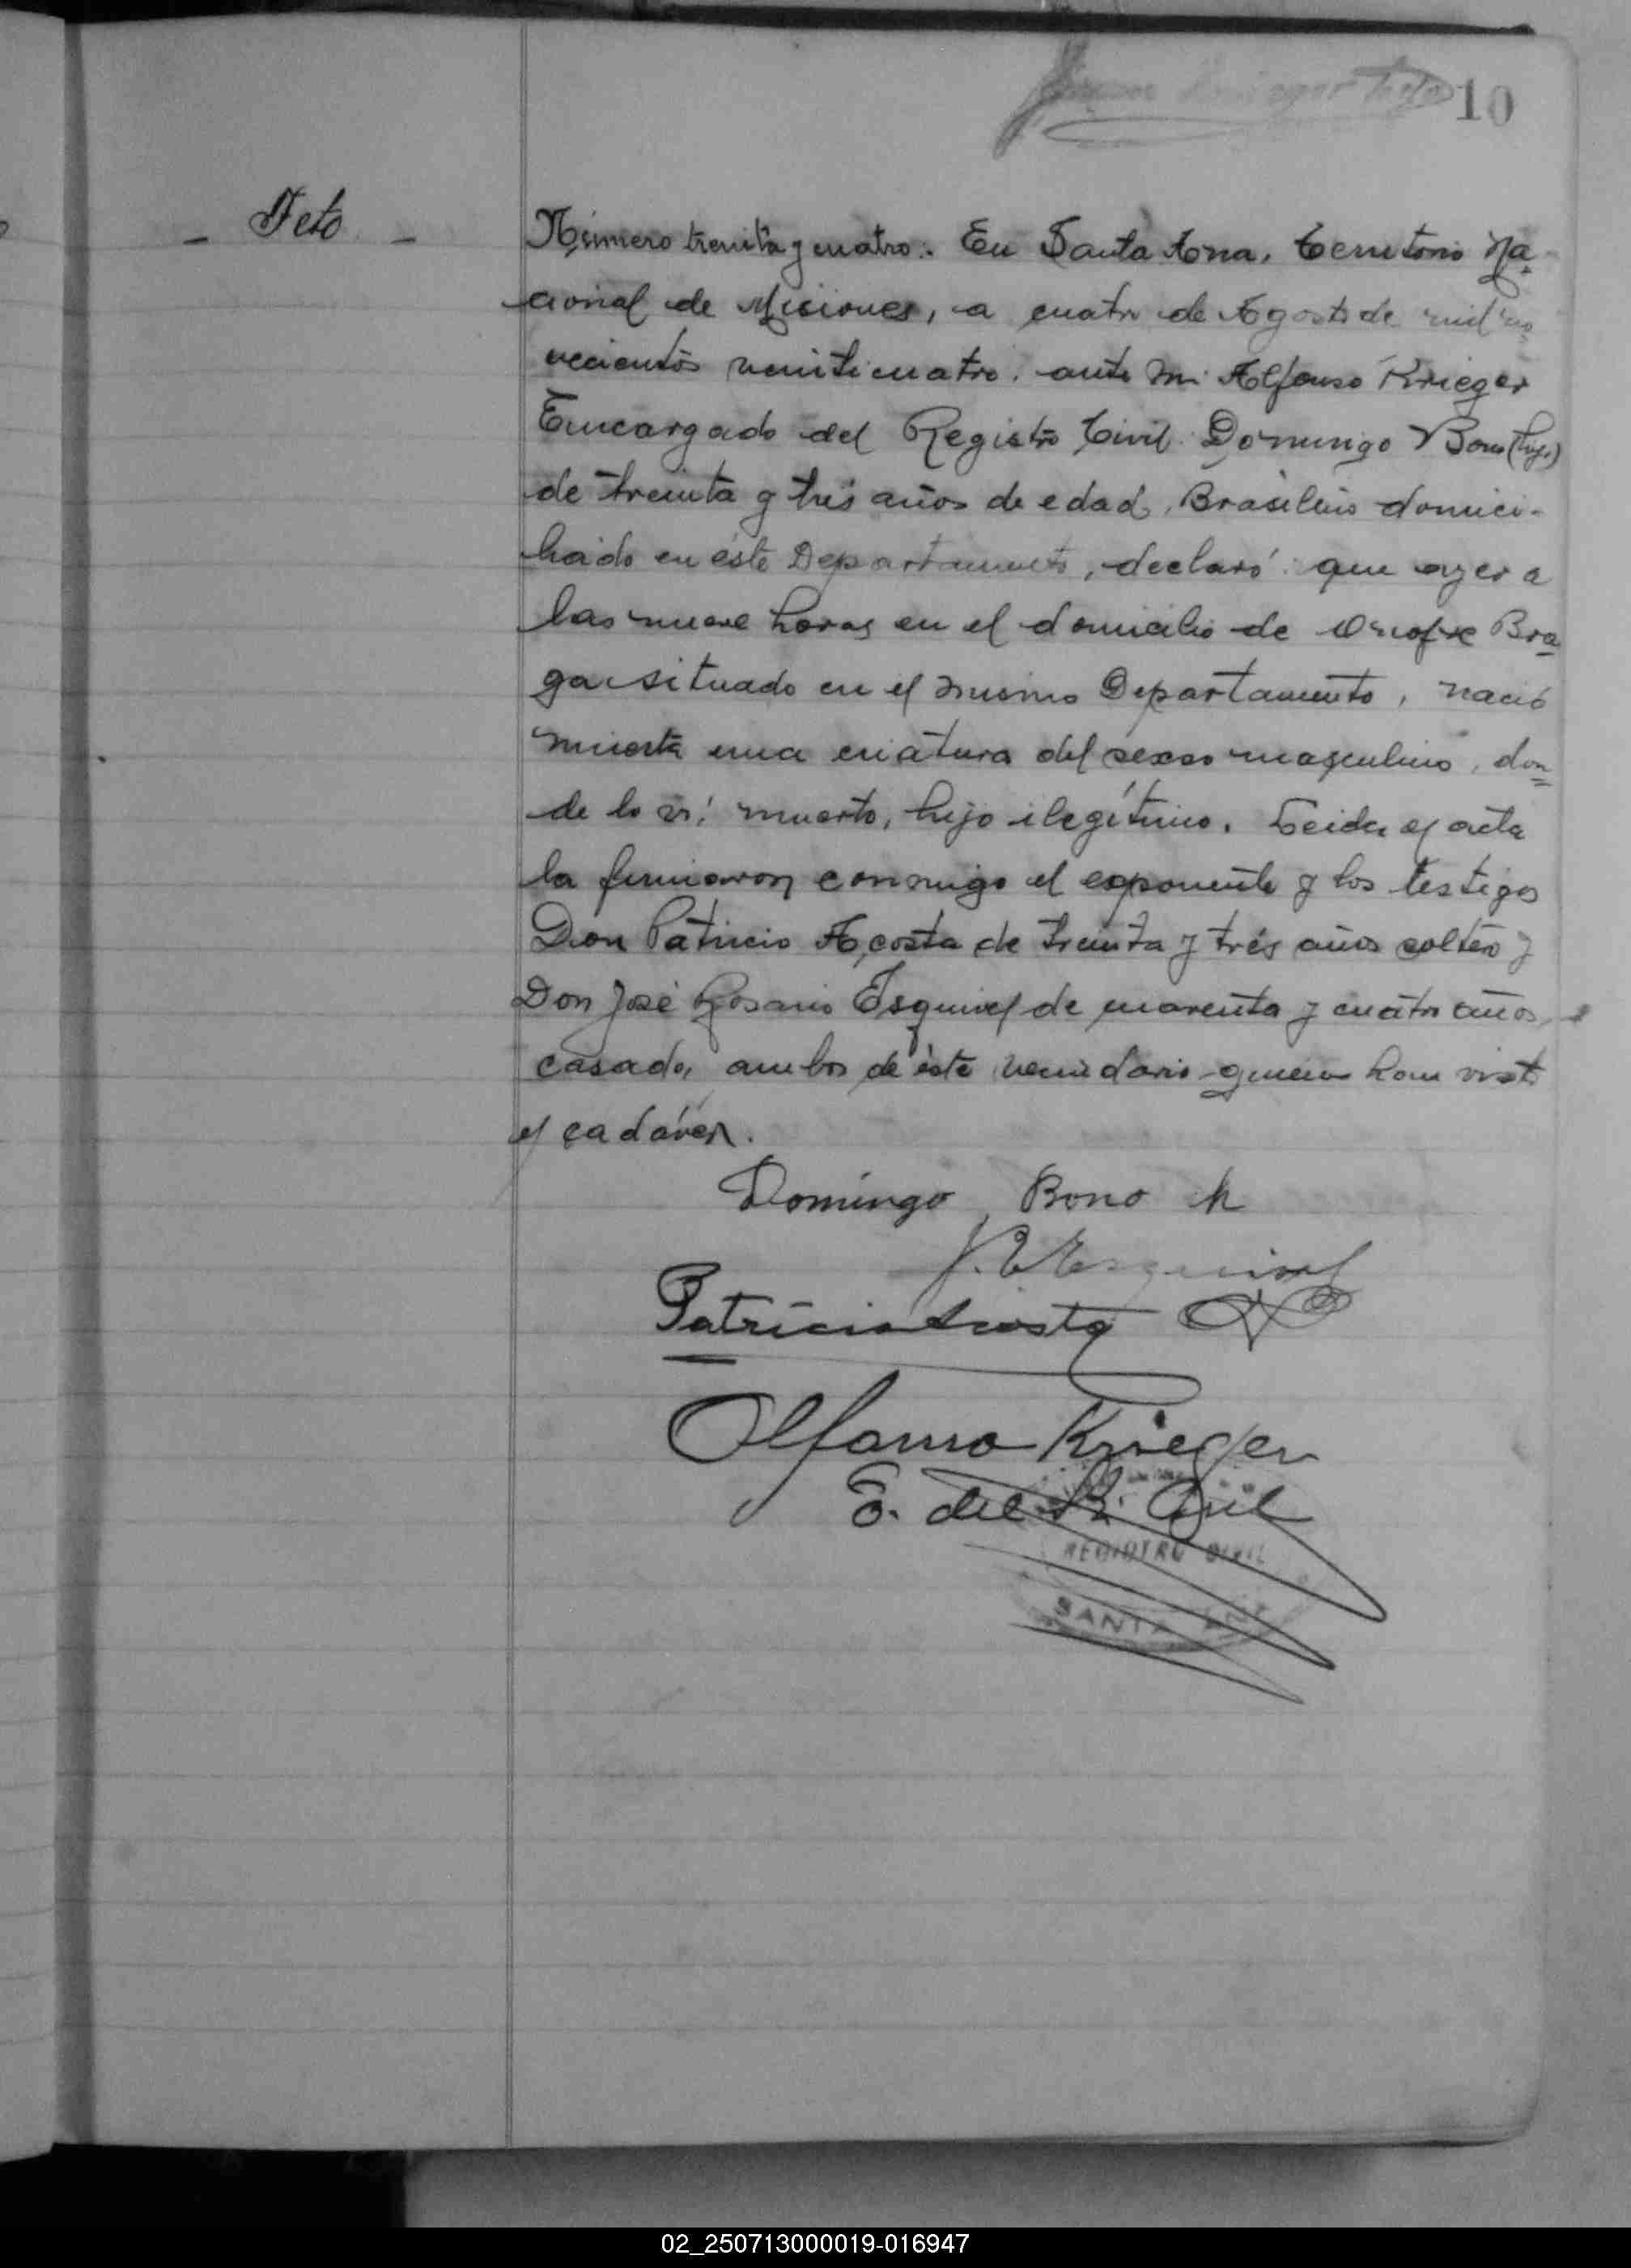 10
- Feto -
Número treinta y cuatro: En Santa Ana, Territorio Na-
cional de Misiones, a cuatro de Agosto de mil no-
vecientos veinticuatro, ante mi Alfonso Krieger
Encargado del Registro Civil Domingo Bono (hijo)
de treinta y tres años de edad, Brasileño domici-
liado en éste Departamento, declaró: que ayer a
las nueve horas en el domicilio de Onofre Bra-
ga situado en el mismo Departamento, nació
muerta una criatura del sexso masculino, don=
de lo vi muerto, hijo ilegítimo. Leida el acta
la firmaron conmigo el exponente y los testigos
Don Patricio Acosta de treinta y trés años soltero y
Don José Rosario Esquivel de cuarenta y cuatro años,
casado, ambos de éste vecindario quienes han visto
el cadáver.
Domingo Bono h
J. R. Esquivel
Patricio Acosta
Alfonso Krieger
E. del R. Civil
REGISTRO CIVIL
SANTA ANA
02_250713000019-016947